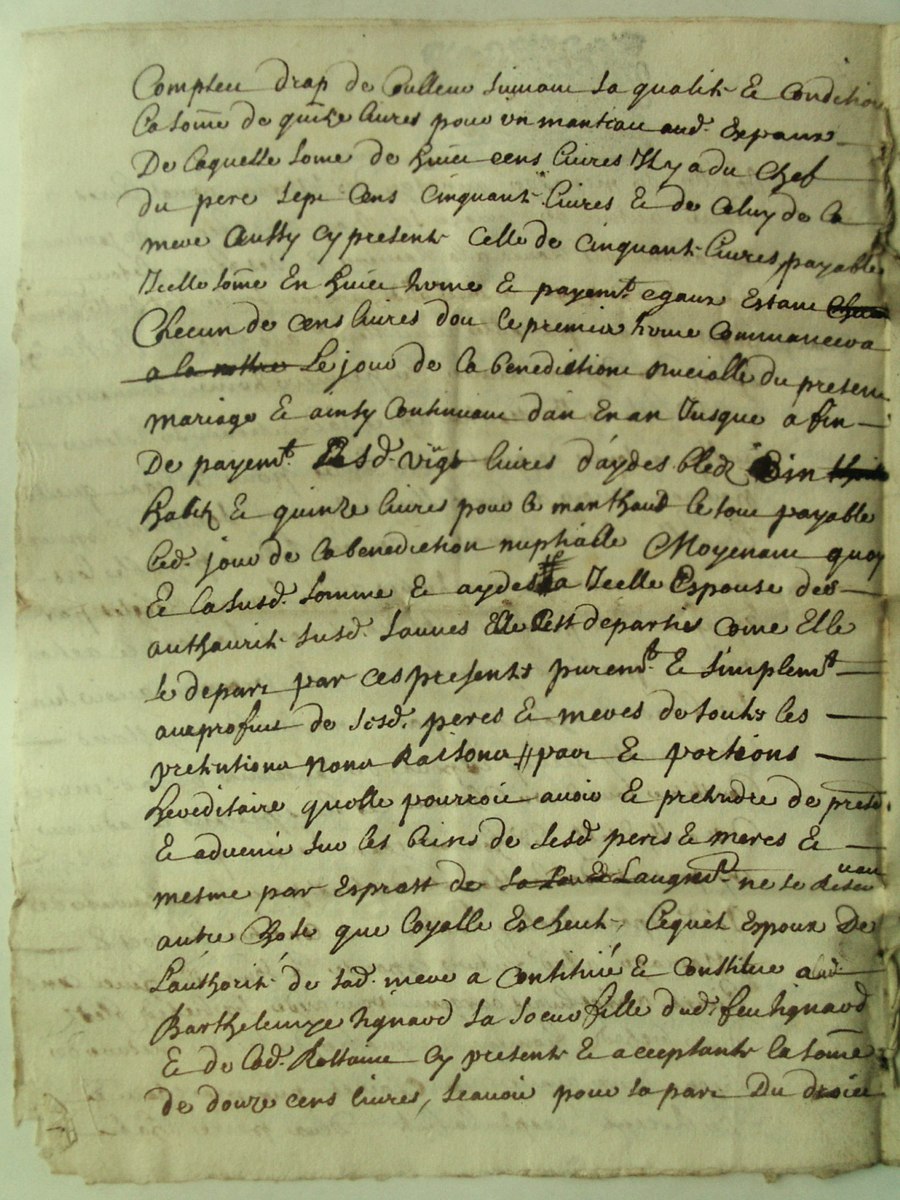 Complect drap de Coulleur suivant sa qualité Et Condition
La somẽ de quinze livres pour un manteau aud. Expoux
De Laquelle some de huict cens livres Il y a du Chef
du pere sept Cens cinquante livres Et de Celuy de la
mere Aussy cy presente Celle de Cinquante livres payable
Icelle somẽ En huict terme Et payemt. egaux Estant
Checun de Cens livres dont le premier terme Commancera
a la nottre Le jour de la benedictione nucialle du present
mariage Et ainsy Continuant d'an En an Jusque a fin
De payemt. Lesd. vigt livres d'aydes bled vin
habit Et quinze livres pour le manthaud le tout payable
led. jour de la benediction nuptialle Moyenant quoy
Et La susd. Somme Et aydes a Icelle Espouse des
authaurité susd. Elle s'est departie come Elle
se depart par ces presentes puremt. Et simplemt.
au profict de sesd. peres Et meres de toutes les
pretentions noms Raisons # part Et portions
hereditaire quelle pourroit avoir Et pretendre de presd.
Et advenir sur les biens de sesd peres Et meres Et
mesme par Expres de La Laugmt. ne se reservant
autre Chose que Loyalle Escheute, Lequel Expoux De
L'authorité de sad. mere a Constitué Et Constitue aud.
Barthelemye Rignaud sa soeur fille dud. feu Rignaud
Et de lad. Rostaint Cy presente Et acceptante la somẽ
de douze cens livres, sçavoir pour sa part Du droict